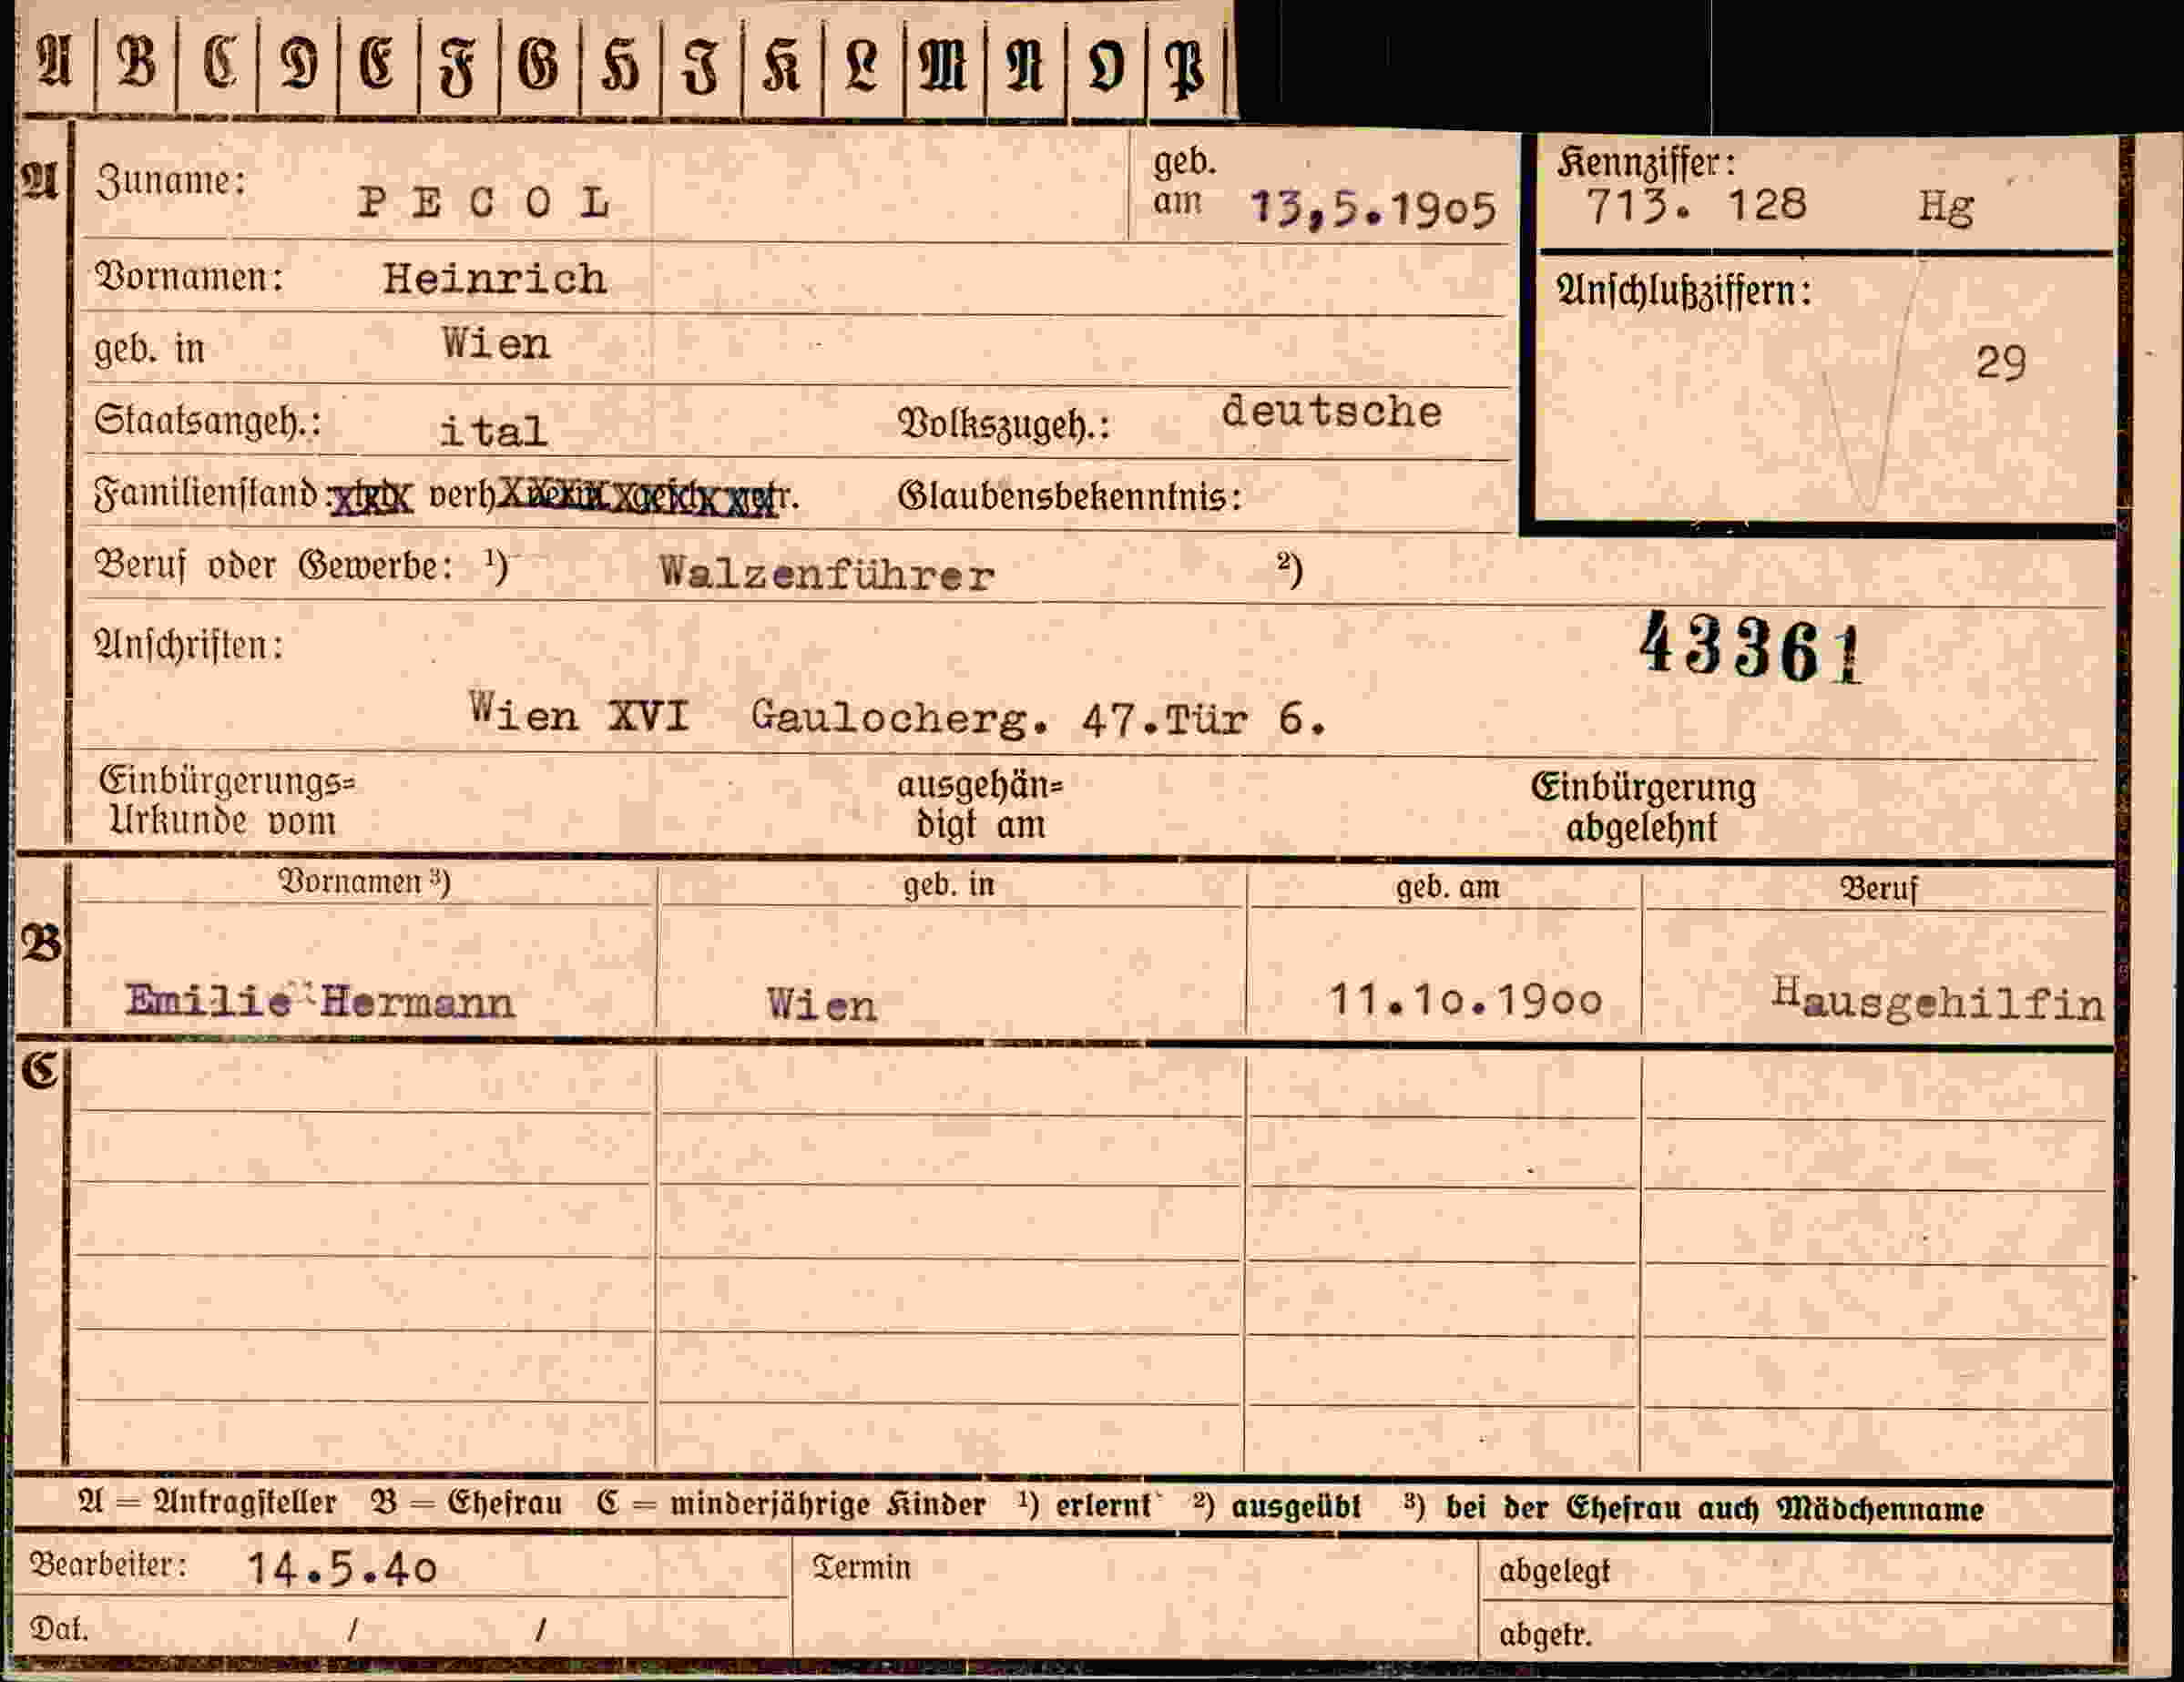 A B C D E F G H I K L M N O P
A Zuname: PECOL geb. am 13,5.1905 Kennziffer: 713. 128 Hg
Vornamen: Heinrich
Anschlußziffern: 29
geb. in Wien
Staatsangeh.: ital Volkszugeh.: deutsche
Familienstand: verh Glaubensbekenntnis:
Beruf oder Gewerbe: ¹) Walzenführer ²)
Anschriften: 43361
Wien XVI Gaulocherg. 47.Tür 6.
Einbürgerungs= ausgehän= Einbürgerung
Urkunde vom digt am abgelehnt
Vornamen ³) geb. in geb. am Beruf
B Emilie Hermann Wien 11.10.1900 Hausgehilfin
C
A = Antragsteller B = Ehefrau C = minderjährige Kinder ¹) erlernt ²) ausgeübt ³) bei der Ehefrau auch Mädchenname
Bearbeiter: 14.5.40 Termin abgelegt
Dat. / / abgetr.